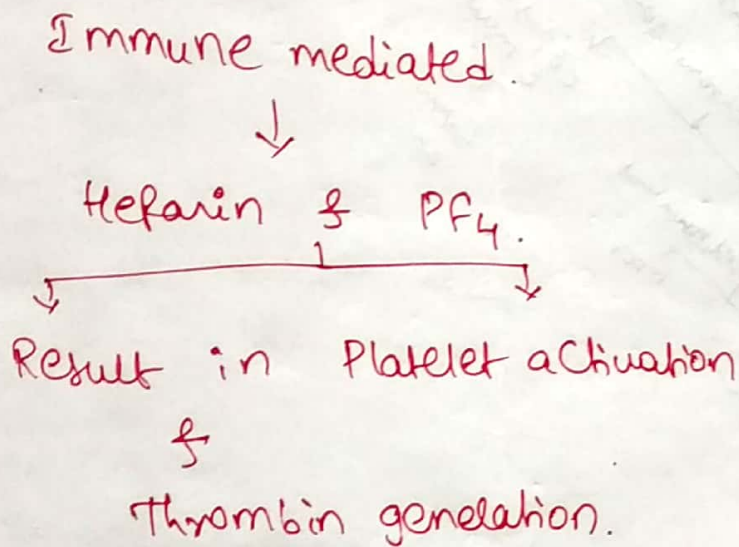 Immune mediated.
Heparin & PF4.
Result in Platelet activation
&
Thrombin generation.